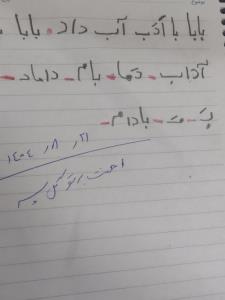 بابا با اَدَب آب داد. بابا
آداب - دَما - بام - داماد -
بَ - مَـ - بادام -
۲۱ / ۸ / ۱۴۰۴
احسنت